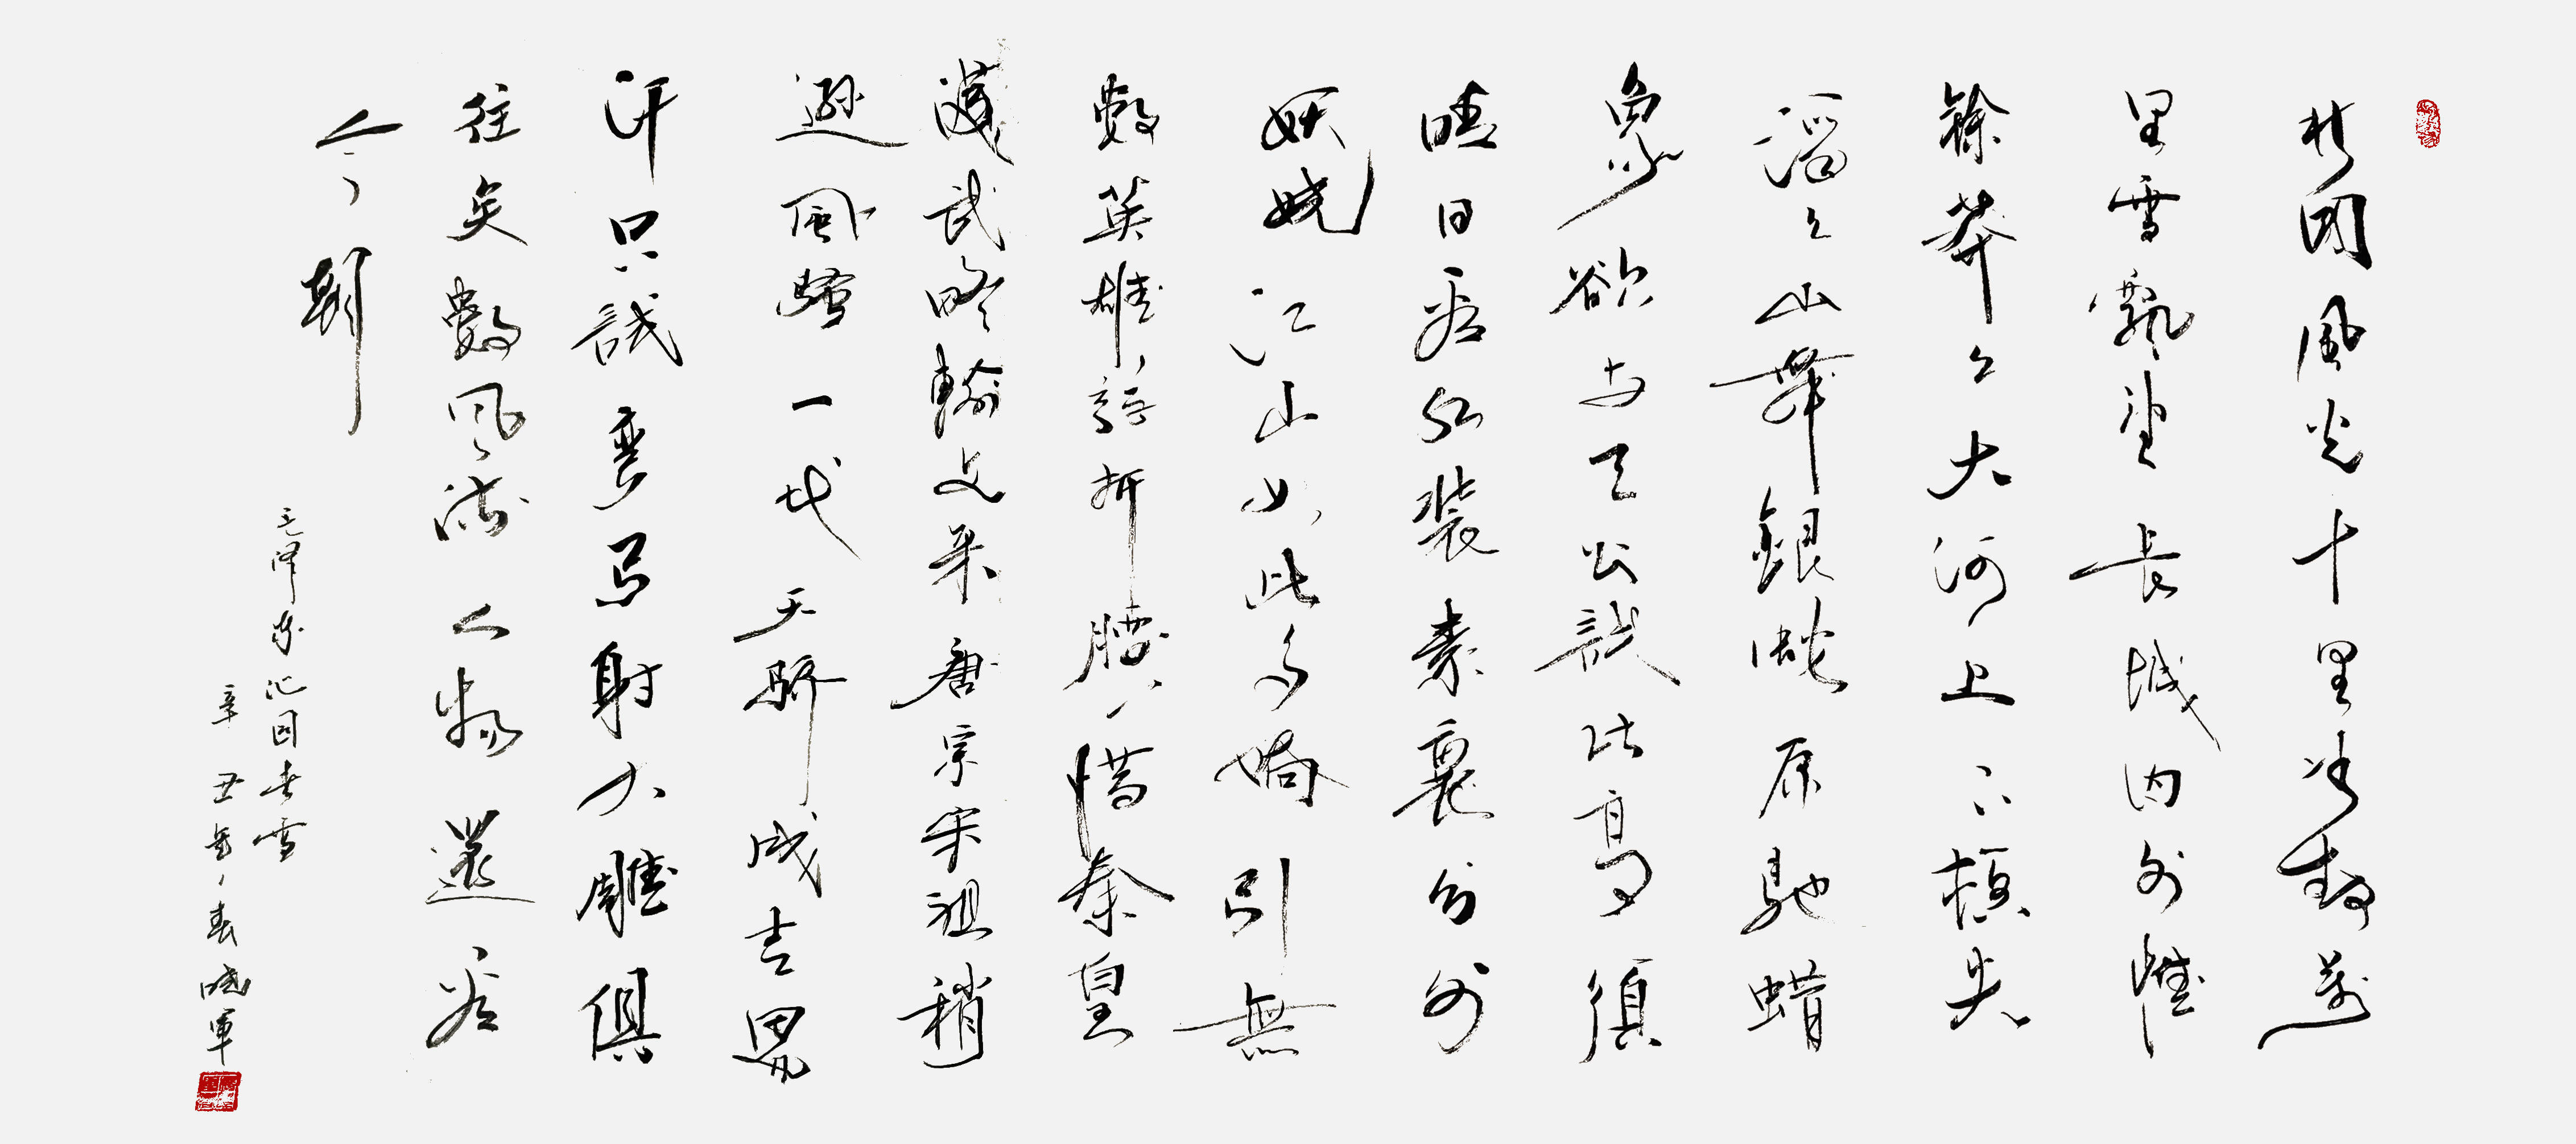 北國風光千里冰封萬
里雪飄望長城内外惟
餘莽々大河上下頓失
滔々山舞銀蛇原馳蜡
象欲与天公試比高須
晴日看红裝素裹分外
妖嬈江山如此多嬌引無
數英雄競折腰惜秦皇
漢武略輸文采唐宗宋祖稍
遜風騷一代天驕成吉思
汗只識彎弓射大雕俱
往矣數風流人物還看
今朝
毛澤东沁园春雪
辛丑年春曉軍